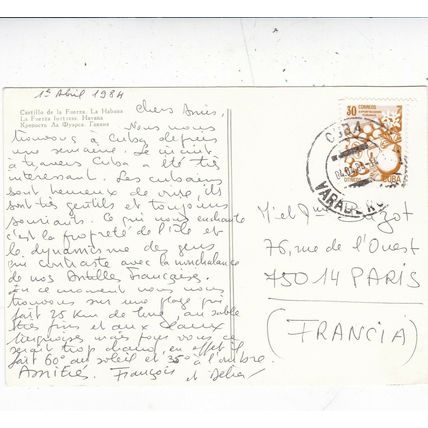 1er Avril 1984
Castillo de la Fuerza. La Habana
La Fuerza fortress. Havana
Крепость Ла Фуэрса. Гавана
Chers Amis,
Nous nous
trouvons à Cuba depuis
une semaine. Le circuit
à travers Cuba a été très
intéressant. Les cubains
sont heureux de vivre, ils
sont très gentils et toujours
souriants. Ce qui nous enchante
c'est la propreté de l'île et
le dynamisme des gens
qui contraste avec la nonchalance
de nos Antilles Françaises.
En ce moment nous nous
trouvons sur une plage qui
fait 25 Km de long, au sable
très fins et aux eaux
mais pour vous ce
serait trop chaud, en effet il
fait 60° au soleil et 35° à l'ombre.
Amitié. François et
30 CORREOS
CUBA
CUBA
VARADERO
M. et Mme
76, rue de l'Ouest
75014 PARIS
(FRANCIA)